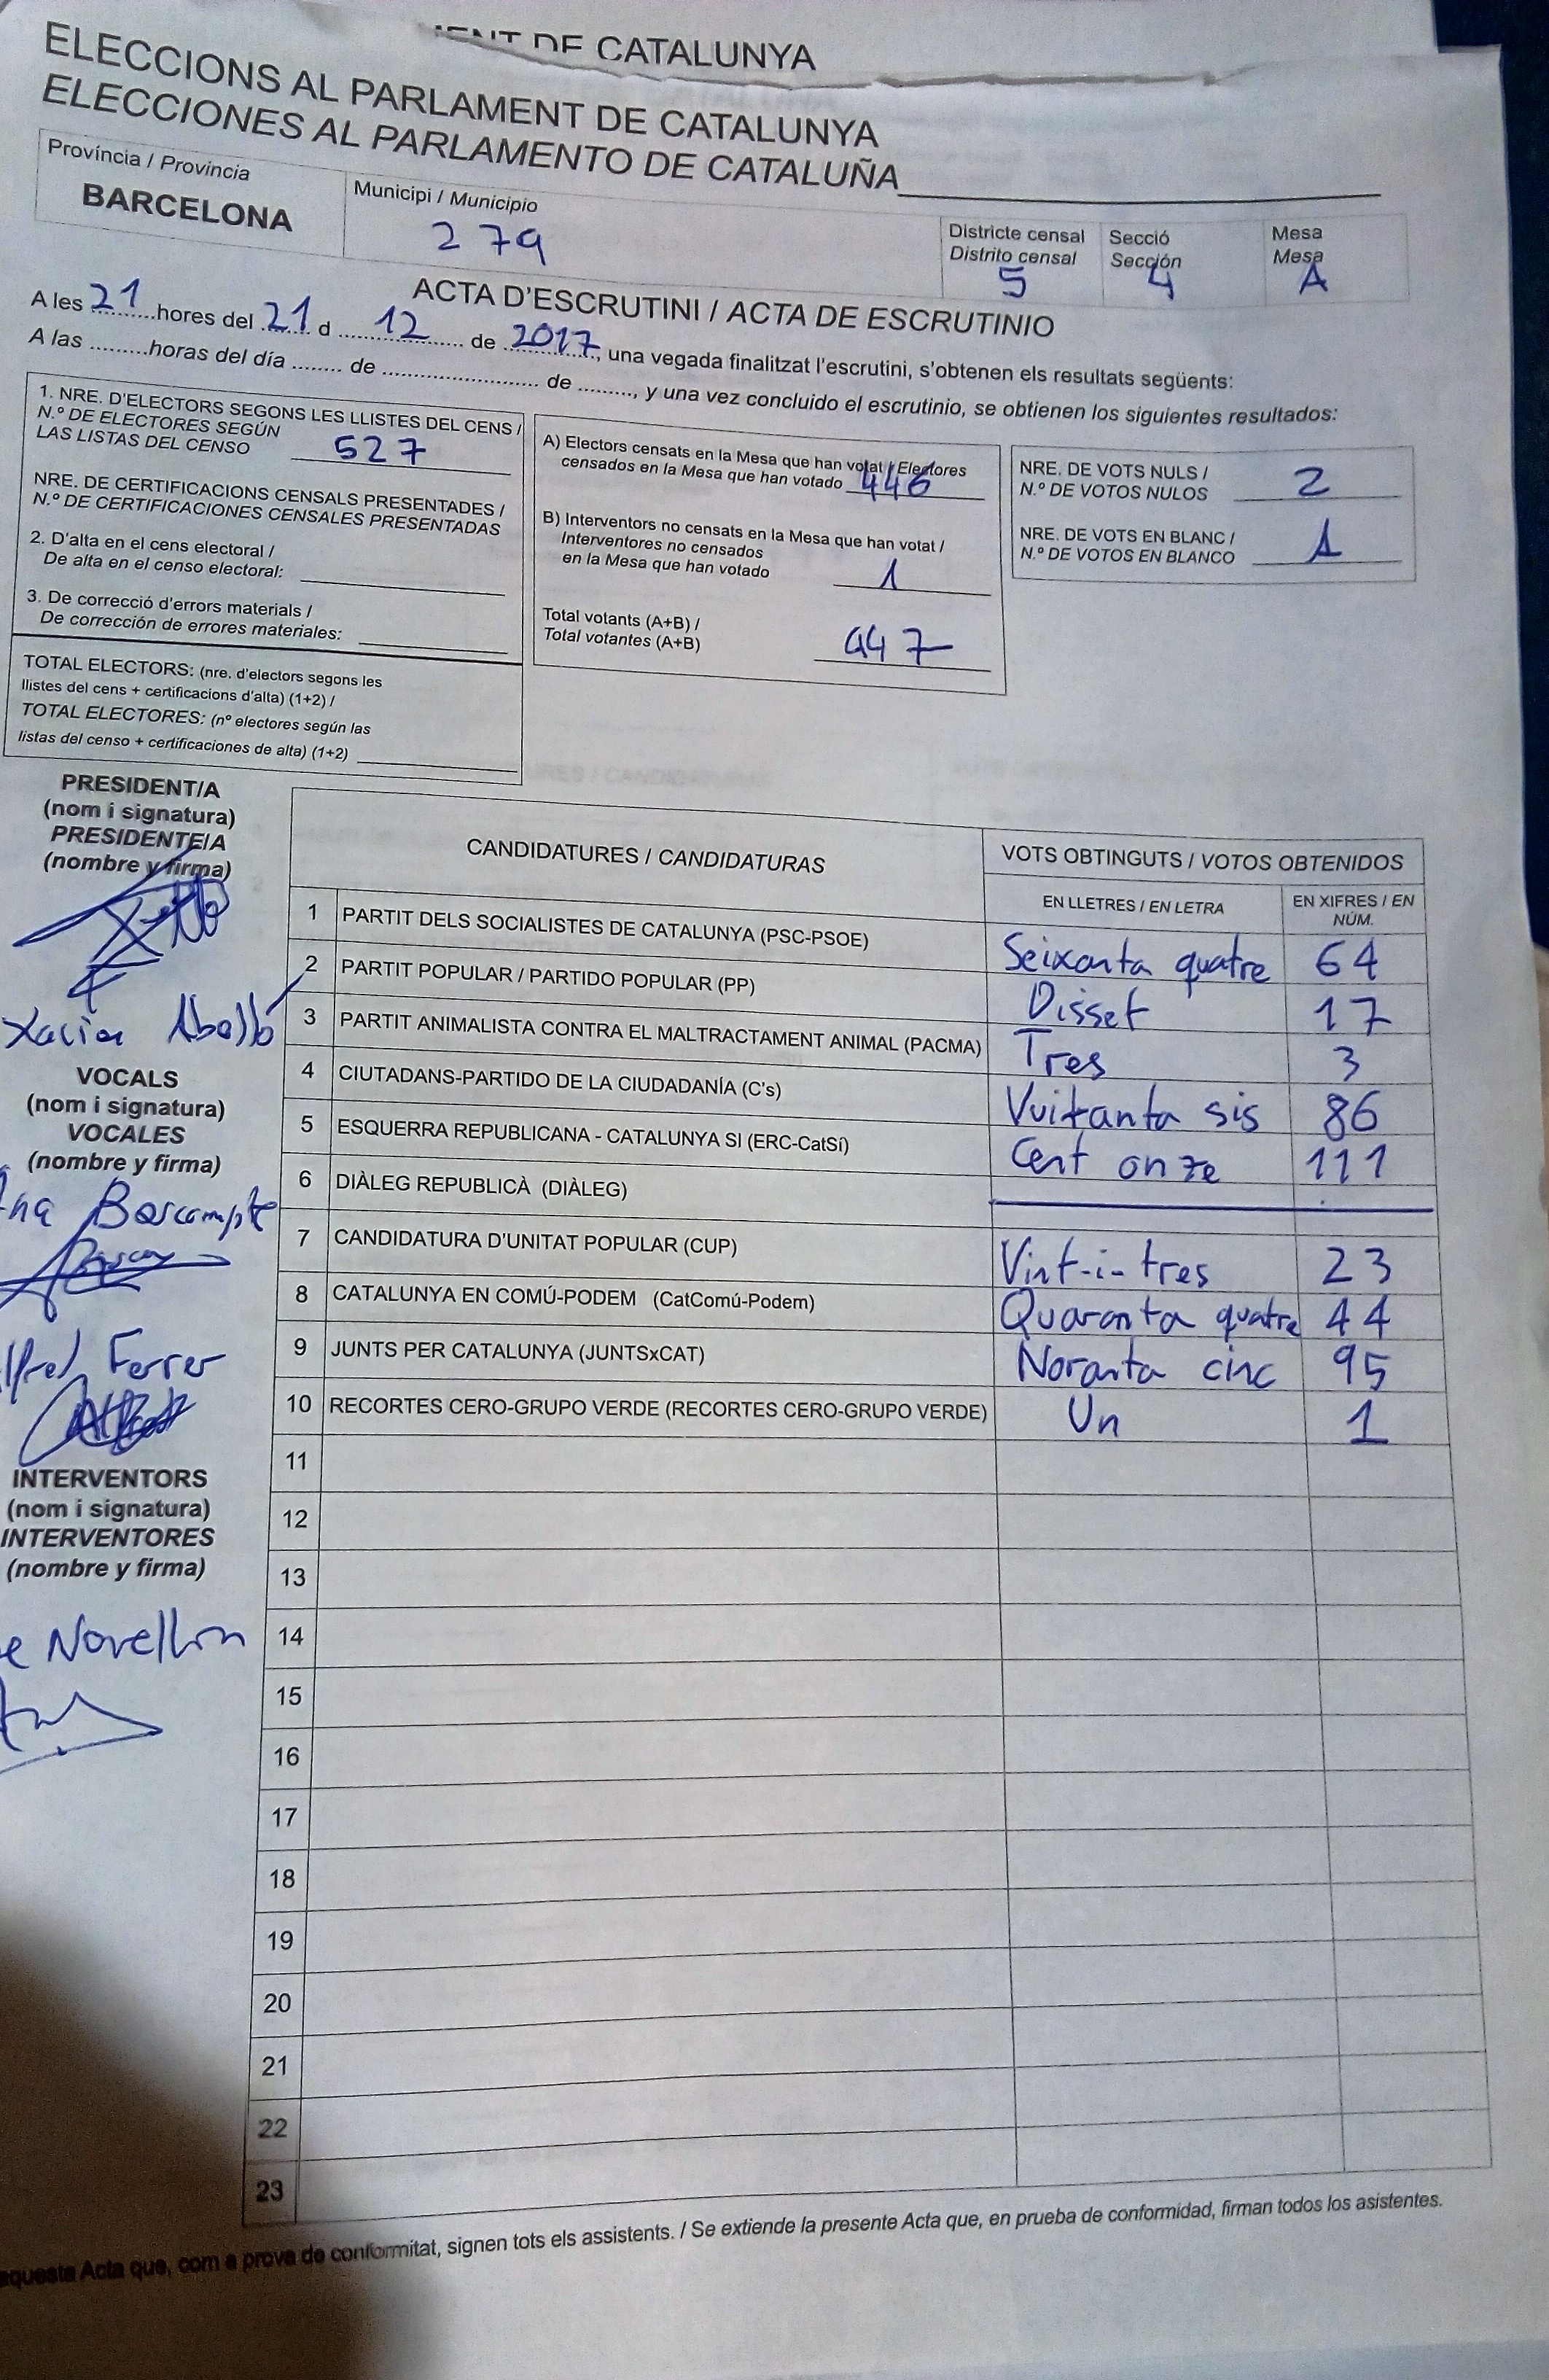 MENT DE CATALUNYA
ELECCIONS AL PARLAMENT DE CATALUNYA
ELECCIONES AL PARLAMENTO DE CATALUÑA
Província / Provincia
BARCELONA
Municipi / Municipio
279
Districte censal
Distrito censal
5
Secció
Sección
4
Mesa
Mesa
A
ACTA D'ESCRUTINI / ACTA DE ESCRUTINIO
A les 21 hores del 21 d 12 de 2017, una vegada finalitzat l'escrutini, s'obtenen els resultats següents:
A las .........horas del día ........ de ........................ de ........., y una vez concluido el escrutinio, se obtienen los siguientes resultados:
1. NRE. D'ELECTORS SEGONS LES LLISTES DEL CENS /
N.º DE ELECTORES SEGÚN
LAS LISTAS DEL CENSO 527
NRE. DE CERTIFICACIONS CENSALS PRESENTADES /
N.º DE CERTIFICACIONES CENSALES PRESENTADAS
2. D'alta en el cens electoral /
De alta en el censo electoral:
3. De correcció d'errors materials /
De corrección de errores materiales:
TOTAL ELECTORS: (nre. d'electors segons les
llistes del cens + certificacions d'alta) (1+2) /
TOTAL ELECTORES: (nº electores según las
listas del censo + certificaciones de alta) (1+2)
A) Electors censats en la Mesa que han votat / Electores
censados en la Mesa que han votado 446
B) Interventors no censats en la Mesa que han votat /
Interventores no censados
en la Mesa que han votado 1
Total votants (A+B) /
Total votantes (A+B) 447
NRE. DE VOTS NULS /
N.º DE VOTOS NULOS 2
NRE. DE VOTS EN BLANC /
N.º DE VOTOS EN BLANCO 1
PRESIDENT/A
(nom i signatura)
PRESIDENTE/A
(nombre y firma)
Xavier Abelló
VOCALS
(nom i signatura)
VOCALES
(nombre y firma)
Ferrer
INTERVENTORS
(nom i signatura)
INTERVENTORES
(nombre y firma)
CANDIDATURES / CANDIDATURAS
VOTS OBTINGUTS / VOTOS OBTENIDOS
EN LLETRES / EN LETRA
EN XIFRES / EN
NÚM.
1 PARTIT DELS SOCIALISTES DE CATALUNYA (PSC-PSOE) Seixanta quatre 64
2 PARTIT POPULAR / PARTIDO POPULAR (PP) Disset 17
3 PARTIT ANIMALISTA CONTRA EL MALTRACTAMENT ANIMAL (PACMA) Tres 3
4 CIUTADANS-PARTIDO DE LA CIUDADANÍA (C's) Vuitanta sis 86
5 ESQUERRA REPUBLICANA - CATALUNYA SI (ERC-CatSí) Cent onze 111
6 DIÀLEG REPUBLICÀ (DIÀLEG)
7 CANDIDATURA D'UNITAT POPULAR (CUP) Vint-i-tres 23
8 CATALUNYA EN COMÚ-PODEM (CatComú-Podem) Quaranta quatre 44
9 JUNTS PER CATALUNYA (JUNTSxCAT) Noranta cinc 95
10 RECORTES CERO-GRUPO VERDE (RECORTES CERO-GRUPO VERDE) Un 1
11
12
13
14
15
16
17
18
19
20
21
22
23
aquesta Acta que, com a prova de conformitat, signen tots els assistents. / Se extiende la presente Acta que, en prueba de conformidad, firman todos los asistentes.